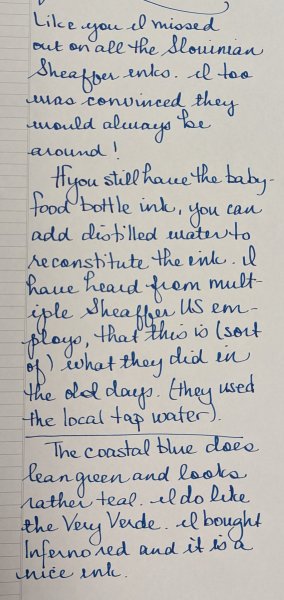 Like you I missed
out on all the Slovinian
Sheaffer inks. I too
was convinced they
would always be
around!
If you still have the baby-
food bottle ink, you can
add distilled water to
reconstitute the ink. I
have heard from mult-
iple Sheaffer US em-
ploys, that this is (sort
of) what they did in
the old days. (they used
the local tap water).
The coastal blue does
lean green and looks
rather teal. I do like
the Very Verde. I bought
Inferno red and it is a
nice ink.